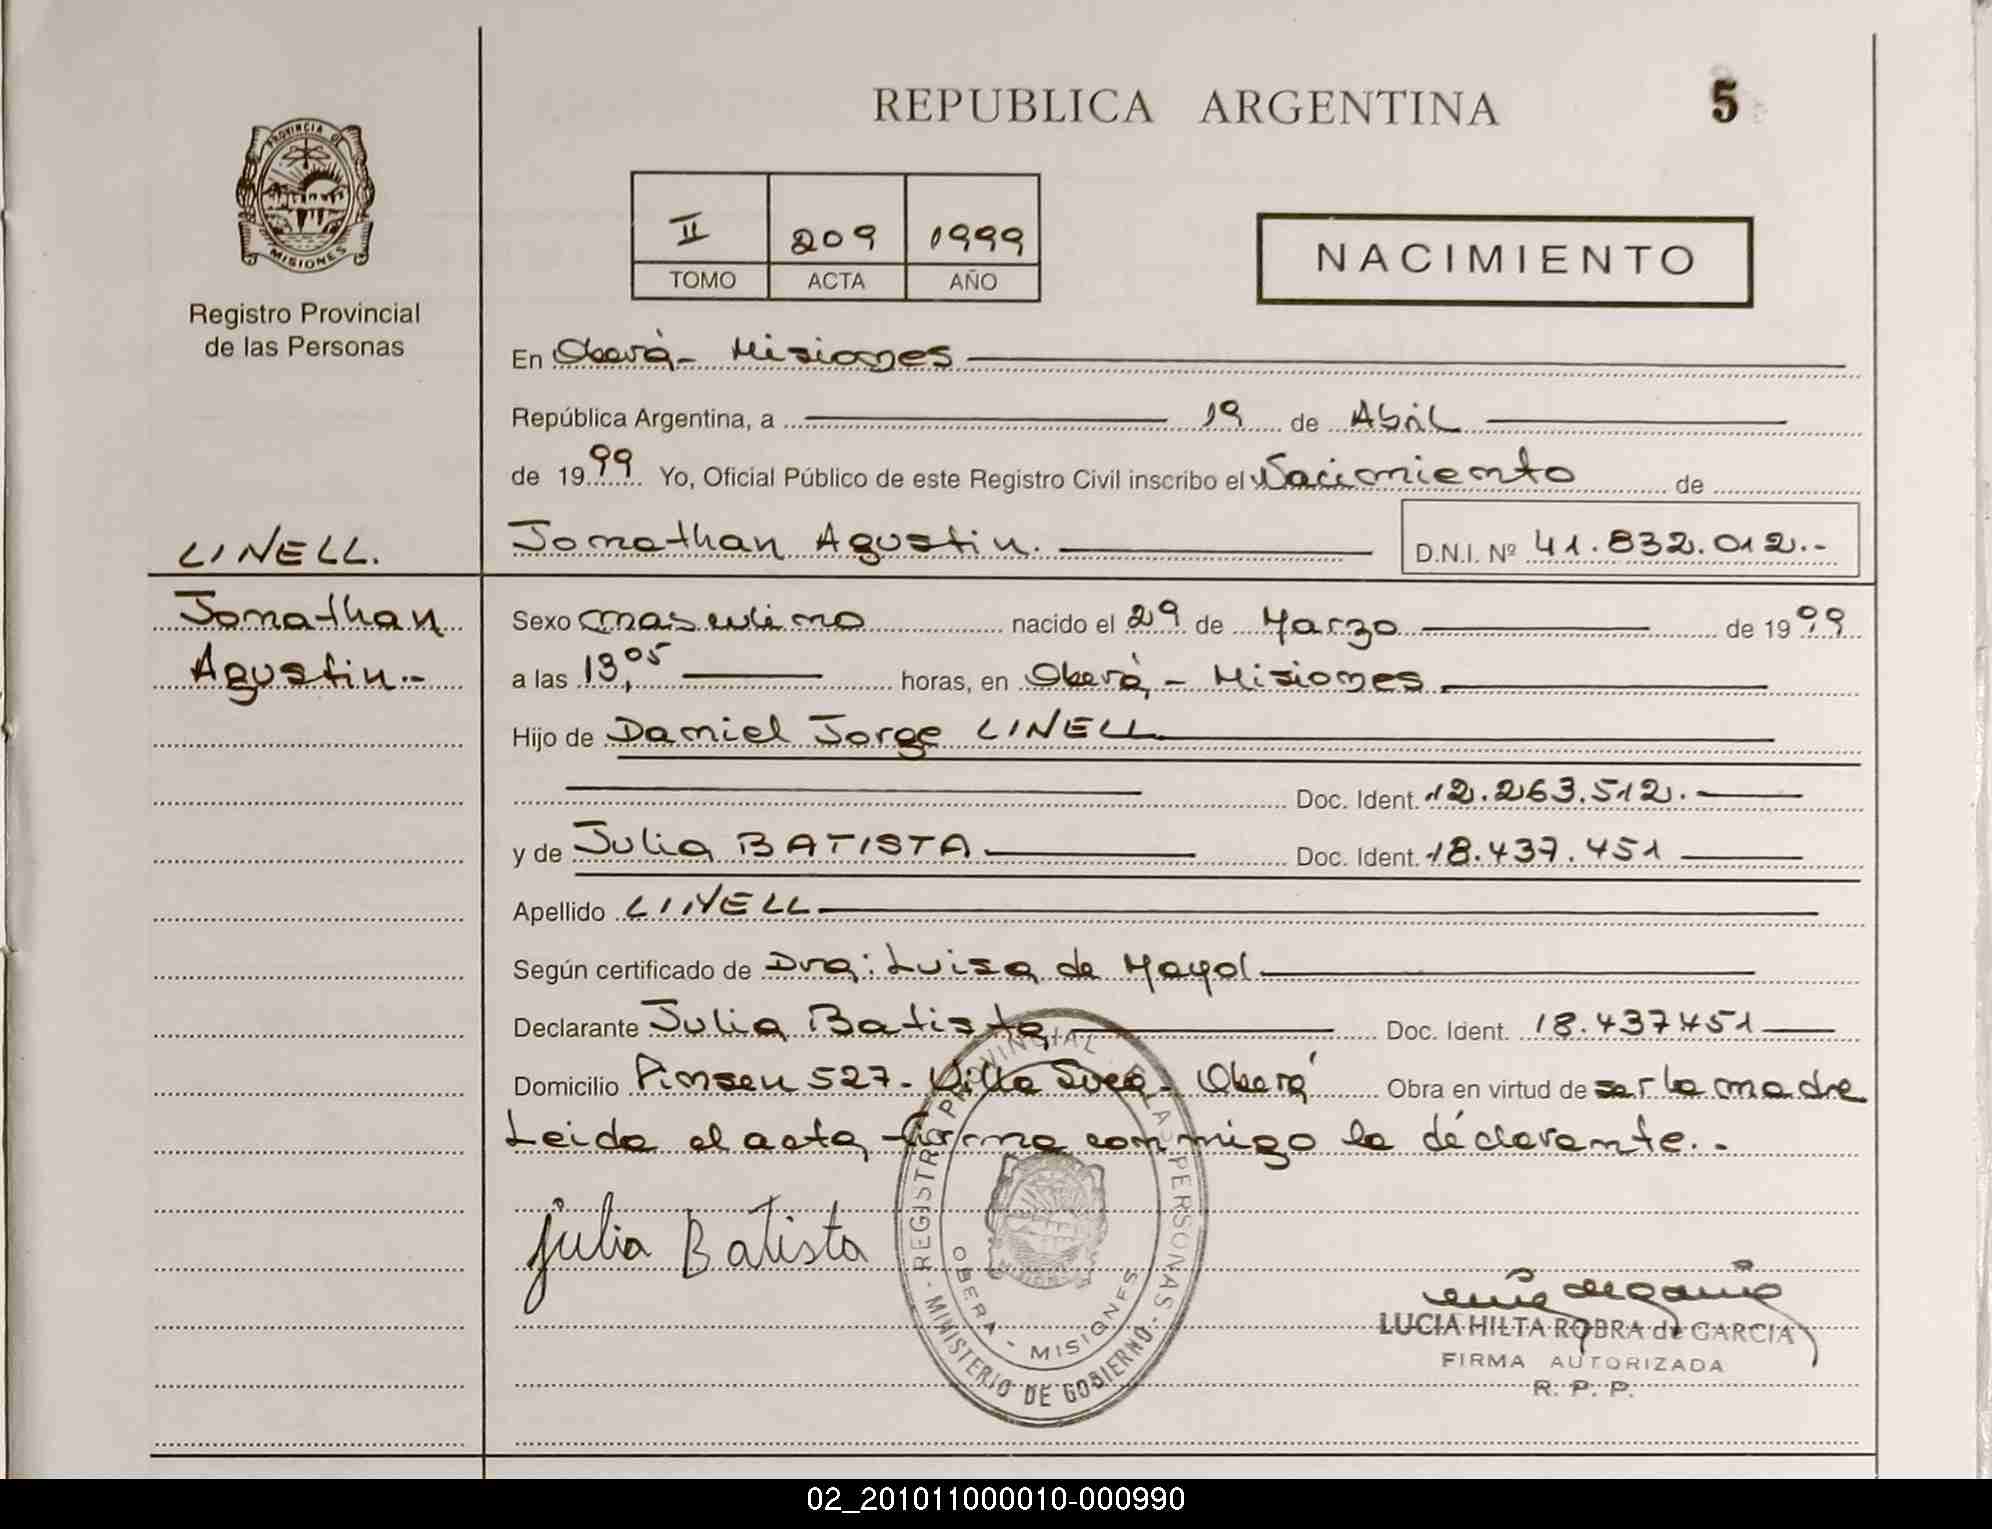 REPUBLICA ARGENTINA
5
PROVINCIA DE
MISIONES
Registro Provincial
de las Personas
II 209 1999
TOMO ACTA AÑO
NACIMIENTO
En Oberá - Misiones
República Argentina, a 19 de Abril
de 1999 Yo, Oficial Público de este Registro Civil inscribo el Nacimiento de
LINELL.
Jonathan Agustin. D.N.I. Nº 41.832.012.-
Jonathan
Agustin.-
Sexo masculino nacido el 29 de Marzo de 1999
a las 13,05 horas, en Oberá - Misiones
Hijo de Daniel Jorge LINELL
Doc. Ident. 12.263.512.
y de Julia BATISTA Doc. Ident. 18.437.451
Apellido LINELL
Según certificado de Dra: Luisa de Mayol
Declarante Julia Batista Doc. Ident. 18.437451
Domicilio 527- Villa Svea - Oberá Obra en virtud de ser la madre
Leida el acta, firma conmigo la declarante.-
Julia Batista
REGISTRO PROVINCIAL DE LAS PERSONAS
OBERA - MISIONES
MINISTERIO DE GOBIERNO
LUCIA HILTA ROBRA de GARCIA
FIRMA AUTORIZADA
R. P. P.
02_201011000010-000990